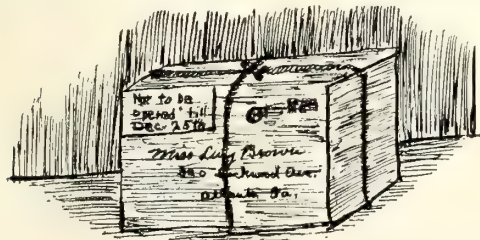 Not to be
opened till
Dec. 25th
Miss Lucy Brown
Lockwood Ave.
Atlanta Ga.